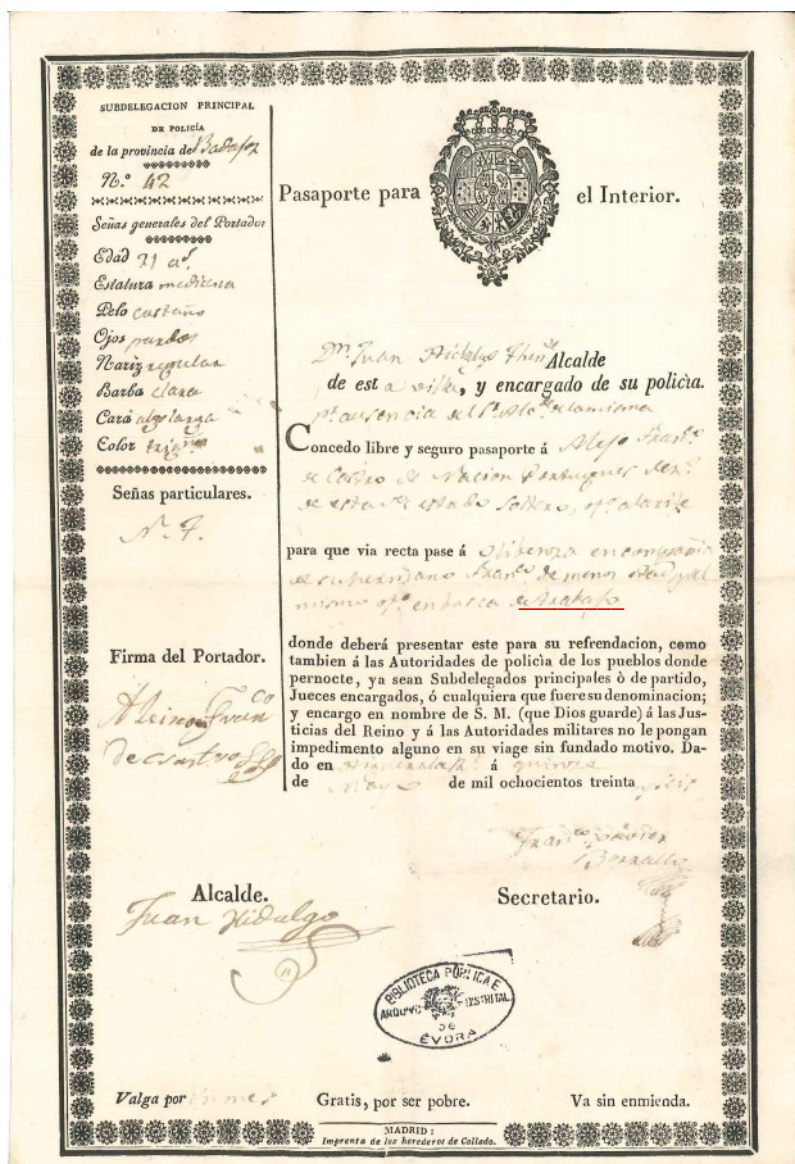 SUBDELEGACION PRINCIPAL
DE POLICÍA
de la provincia de Badajoz
N.º 42
Señas generales del Portador
Edad 21 a.s
Estatura mediana
Pelo castaño
Ojos pardos
Nariz regular
Barba clara
Cara algo larga
Color trig.ño
Señas particulares.
Firma del Portador.
Pasaporte para el Interior.
Dn. Juan Hidalgo Then.te Alcalde
de esta villa, y encargado de su policìa.
pr. ausencia del Sr. Alc.de de la misma
Concedo libre y seguro pasaporte á Alejo Fran.co
de Castro de Nacion Portugues
de esta estado soltero, of.o alarife
para que via recta pase á Olibenza en compañia
de su hermano Fran.co de menor edad y del
mismo of.o en busca de trabajo
donde deberá presentar este para su refrendacion, como
tambien á las Autoridades de policìa de los pueblos donde
pernocte, ya sean Subdelegados principales ò de partido,
Jueces encargados, ó cualquiera que fuere su denominacion;
y encargo en nombre de S. M. (que Dios guarde) á las Jus-
ticias del Reino y á las Autoridades militares no le pongan
impedimento alguno en su viage sin fundado motivo. Da-
do en á quinze
de Mayo de mil ochocientos treinta
Fran.co Xavier
de Castro
Alcalde.
Secretario.
Juan Hidalgo
BIBLIOTECA PÚBLICA E
ARQUIVO DISTRITAL
DE
ÉVORA
Valga por un mes Gratis, por ser pobre. Va sin enmienda.
MADRID:
Imprenta de los herederos de Collado.